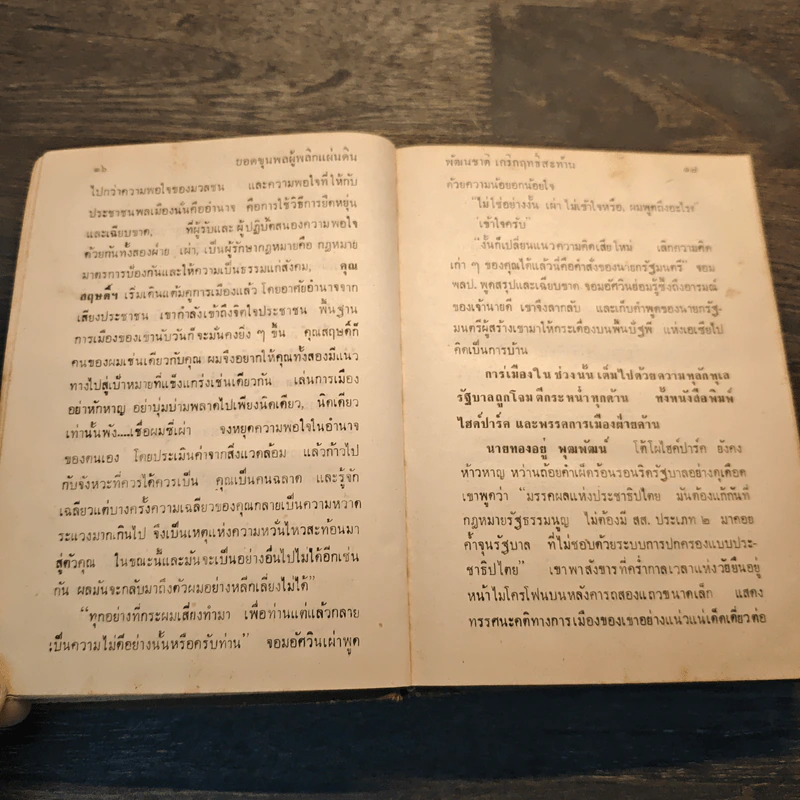 ๑๖ ยอดขุนพลผู้พลิกแผ่นดิน
ไปกว่าความพอใจของมวลชน และความพอใจที่ให้กับ
ประชาชนพลเมืองนั่นคืออำนาจ คือการใช้วิธีการยืดหยุ่น
และเฉียบขาด, ที่ผู้รับและผู้ปฏิบัติสนองความพอใจ
ด้วยกันทั้งสองฝ่าย เผ่า, เป็นผู้รักษากฎหมายคือ กฎหมาย
มาตรการป้องกันและให้ความเป็นธรรมแก่สังคม, คุณ
สฤษดิ์ฯ เริ่มเดินแต้มคูการเมืองแล้ว โดยอาศัยอำนาจจาก
เสียงประชาชน เขากำลังเข้าถึงจิตใจประชาชน พื้นฐาน
การเมืองของเขานับวันก็จะมั่นคงยิ่ง ๆ ขึ้น คุณสฤษดิ์ก็
คนของผมเช่นเดียวกับคุณ ผมจึงอยากให้คุณทั้งสองมีแนว
ทางไปสู่เป้าหมายที่แข็งแกร่งเช่นเดียวกัน เล่นการเมือง
อย่าหักหาญ อย่าบุ่มบ่ามพลาดไปเพียงนิดเดียว, นิดเดียว
เท่านั้นพัง....เชื่อผมซี่เผ่า จงหยุดความพอใจในอำนาจ
ของตนเอง โดยประเมินค่าจากสิ่งแวดล้อม แล้วก้าวไป
กับจังหวะที่ควรได้ควรเป็น คุณเป็นคนฉลาด และรู้จัก
เฉลียวแต่บางครั้งความเฉลียวของคุณกลายเป็นความหวาด
ระแวงมากเกินไป จึงเป็นเหตุแห่งความหวั่นไหวสะท้อนมา
สู่ตัวคุณ ในขณะนี้และมันจะเป็นอย่างอื่นไปไม่ได้อีกเช่น
กัน ผลมันจะกลับมาถึงตัวผมอย่างหลีกเลี่ยงไม่ได้"
"ทุกอย่างที่กระผมเสี่ยงทำมา เพื่อท่านแต่แล้วกลาย
เป็นความไม่ดีอย่างนั้นหรือครับท่าน" จอมอัศวินเผ่าพูด
พัฒนชาติ เกริกฤทธิ์สะท้าน ๑๗
ด้วยความน้อยอกน้อยใจ
"ไม่ใช่อย่างงั้น เผ่า ไม่เข้าใจหรือ, ผมพูดถึงอะไร"
"เข้าใจครับ"
"งั้นก็เปลี่ยนแนวความคิดเสียใหม่ เลิกความคิด
เก่า ๆ ของคุณได้แล้วนี่คือคำสั่งของนายกรัฐมนตรี" จอม
พลป. พูดสรุปและเฉียบขาด จอมอัศวินย่อมรู้ซึ้งถึงอารมณ์
ของเจ้านายดี เขาจึงลากลับ และเก็บคำพูดของนายกรัฐ-
มนตรีผู้สร้างเขามาให้กระเดื่องบนพื้นปัฐพี แห่งเอเซียไป
คิดเป็นการบ้าน
การเมืองใน ช่วงนั้น เต็มไปด้วยความหฺลักหฺเล
รัฐบาลถูกโจม ตีกระหน่ำทุกด้าน ทั้งหนังสือพิมพ์
ไฮด์ปาร์ค และพรรคการเมืองฝ่ายค้าน
นายทองอยู่ พุฒพัฒน์ โต้โผไฮด์ปาร์ค ยังคง
ห้าวหาญ หว่านถ้อยคำเผ็ดร้อนรอนริดรัฐบาลอย่างดุเดือด
เขาพูดว่า "มรรคผลแห่งประชาธิปไตย มันต้องแก้กันที่
กฎหมายรัฐธรรมนูญ ไม่ต้องมี สส. ประเภท ๒ มาคอย
ค้ำจุนรัฐบาล ที่ไม่ชอบด้วยระบบการปกครองแบบประ-
ชาธิปไตย" เขาพาสังขารที่คร่ำกาลเวลาแห่งวัยยืนอยู่
หน้าไมโครโฟนบนหลังคารถสองแถวขนาดเล็ก แสดง
ทรรศนะคติทางการเมืองของเขาอย่างแน่วแน่เด็ดเดี่ยวต่อ